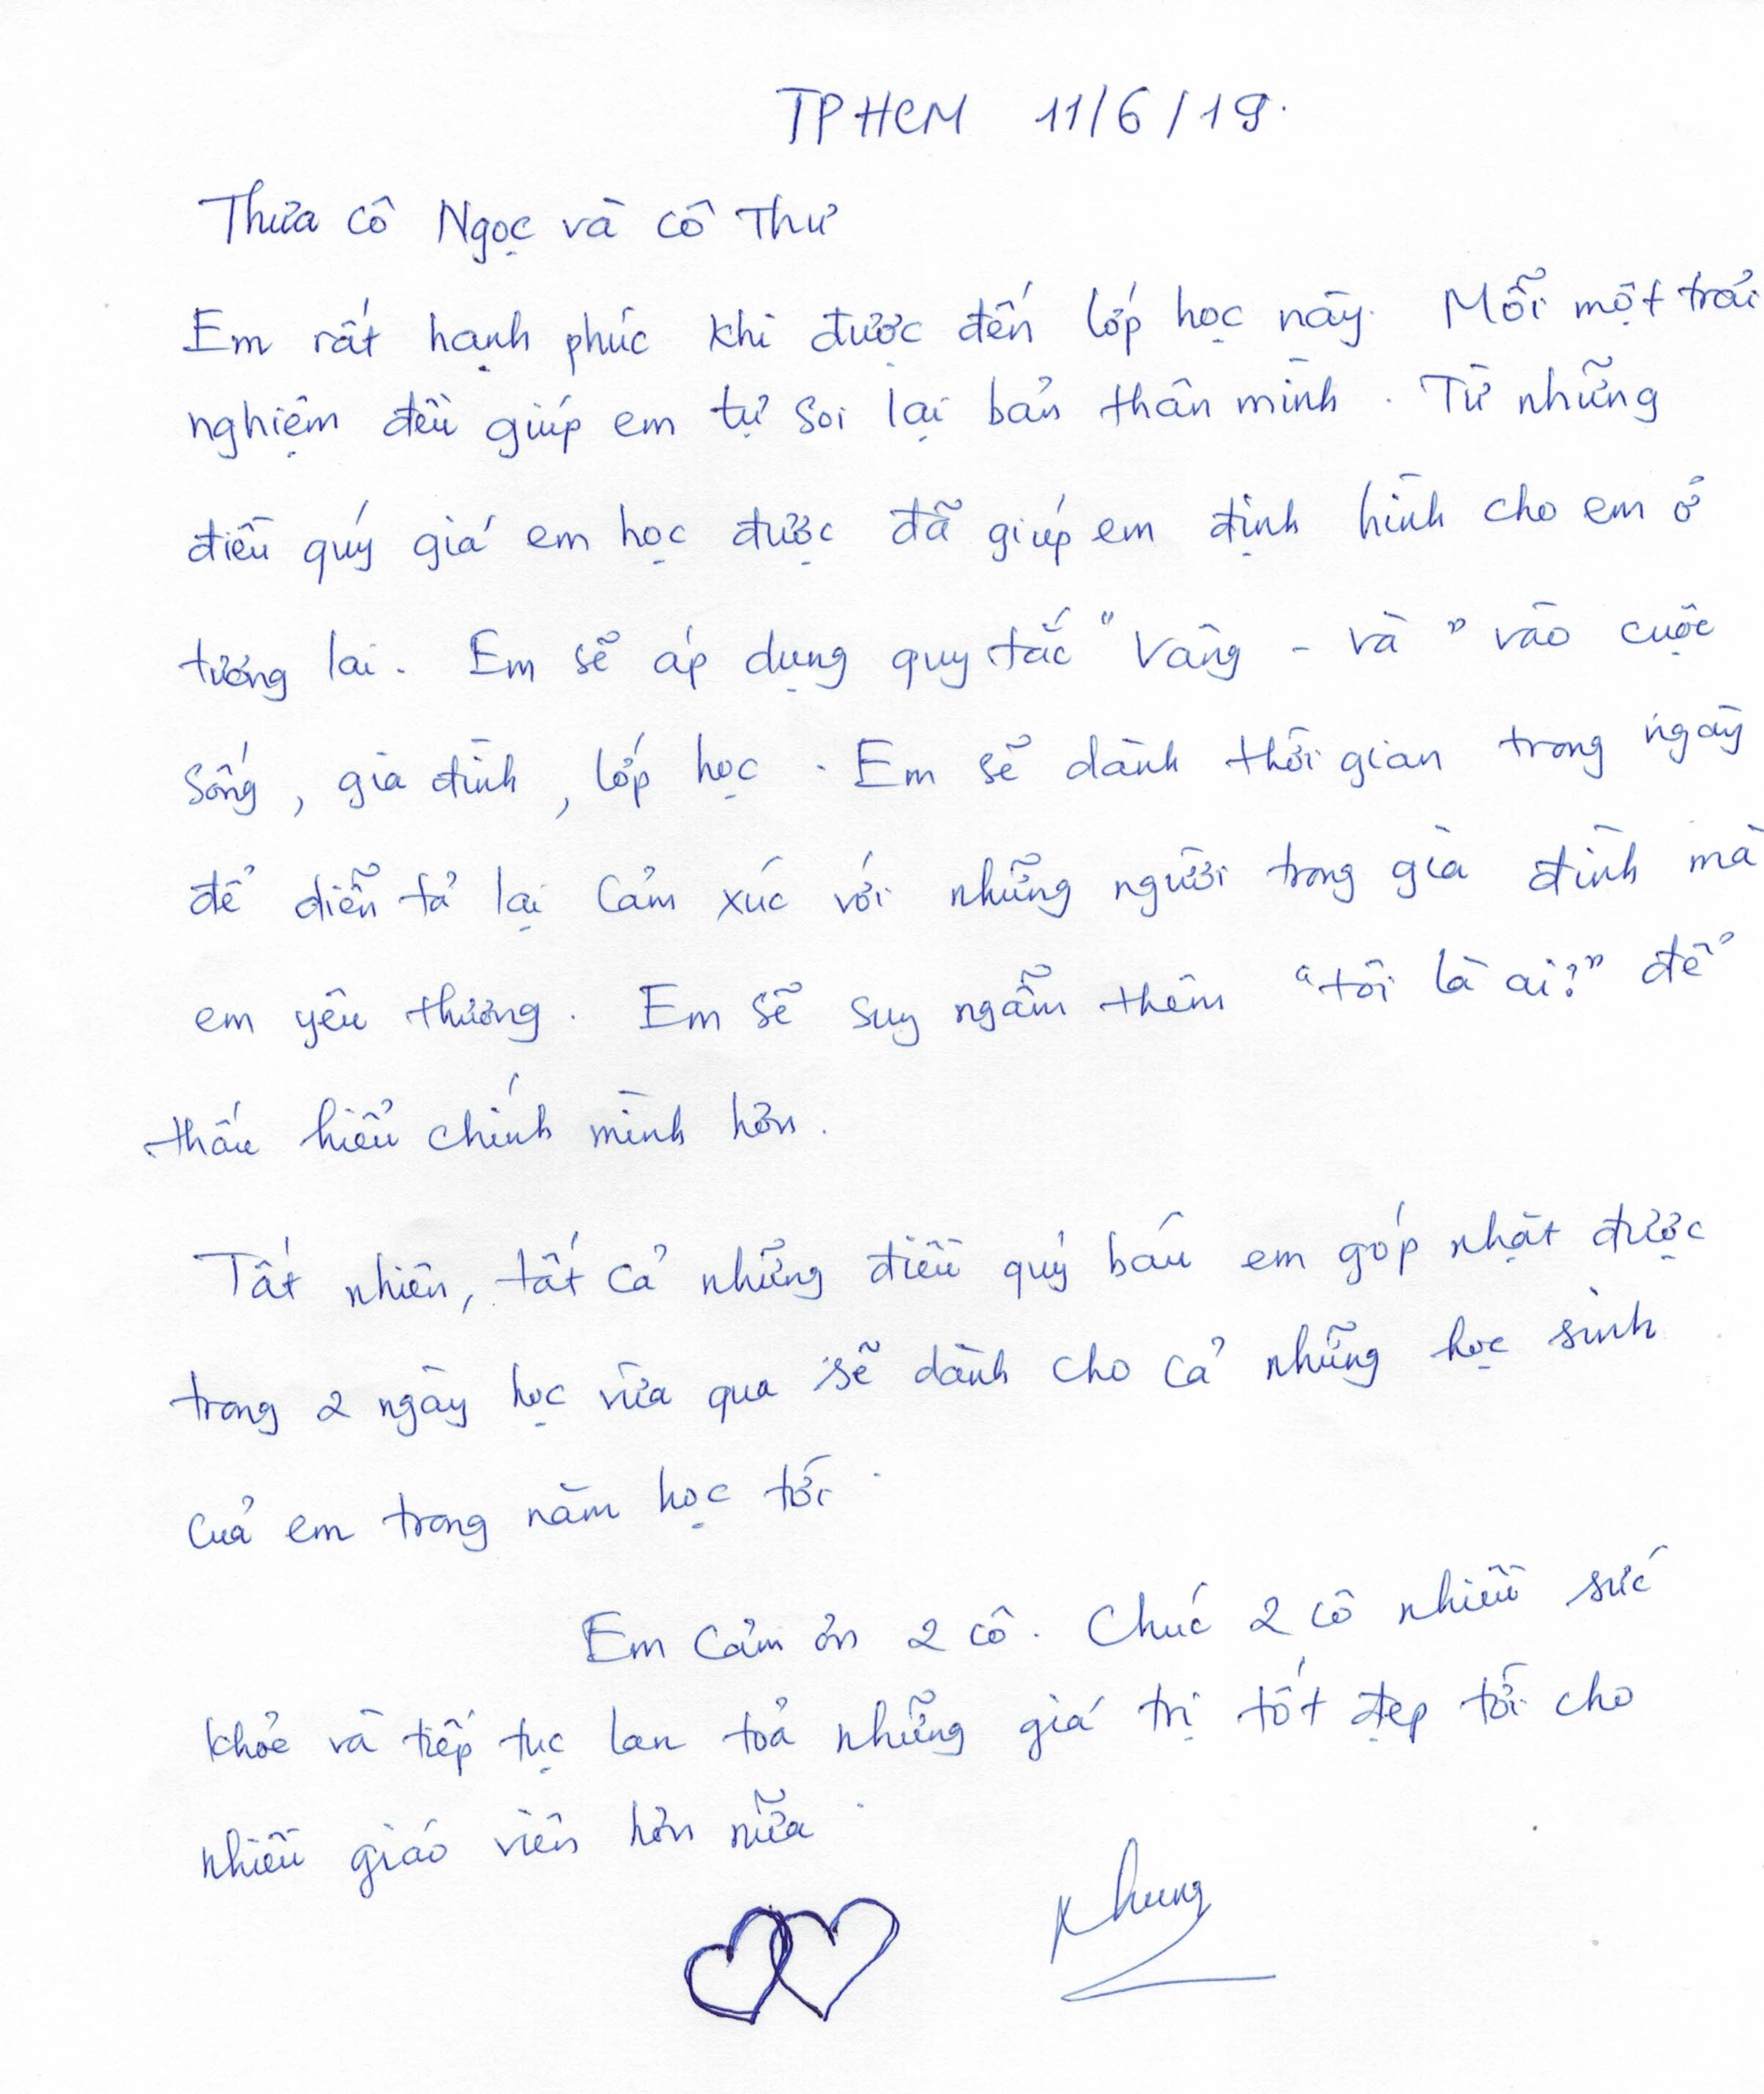 TPHCM 11/6/19.
Thưa cô Ngọc và cô Thư
Em rất hạnh phúc khi được đến lớp học này. Mỗi một trải
nghiệm đều giúp em tự soi lại bản thân mình. Từ những
điều quý giá em học được đã giúp em định hình cho em ở
tương lai. Em sẽ áp dụng quy tắc "Vâng - và" vào cuộc
sống, gia đình, lớp học. Em sẽ dành thời gian trong ngày
để diễn tả lại cảm xúc với những người trong gia đình mà
em yêu thương. Em sẽ suy ngẫm thêm "tôi là ai?" để
thấu hiểu chính mình hơn.
Tất nhiên, tất cả những điều quý báu em góp nhặt được
trong 2 ngày học vừa qua sẽ dành cho cả những học sinh
của em trong năm học tới.
Em cảm ơn 2 cô. Chúc 2 cô nhiều sức
khỏe và tiếp tục lan toả những giá trị tốt đẹp tới cho
nhiều giáo viên hơn nữa.
Nhung